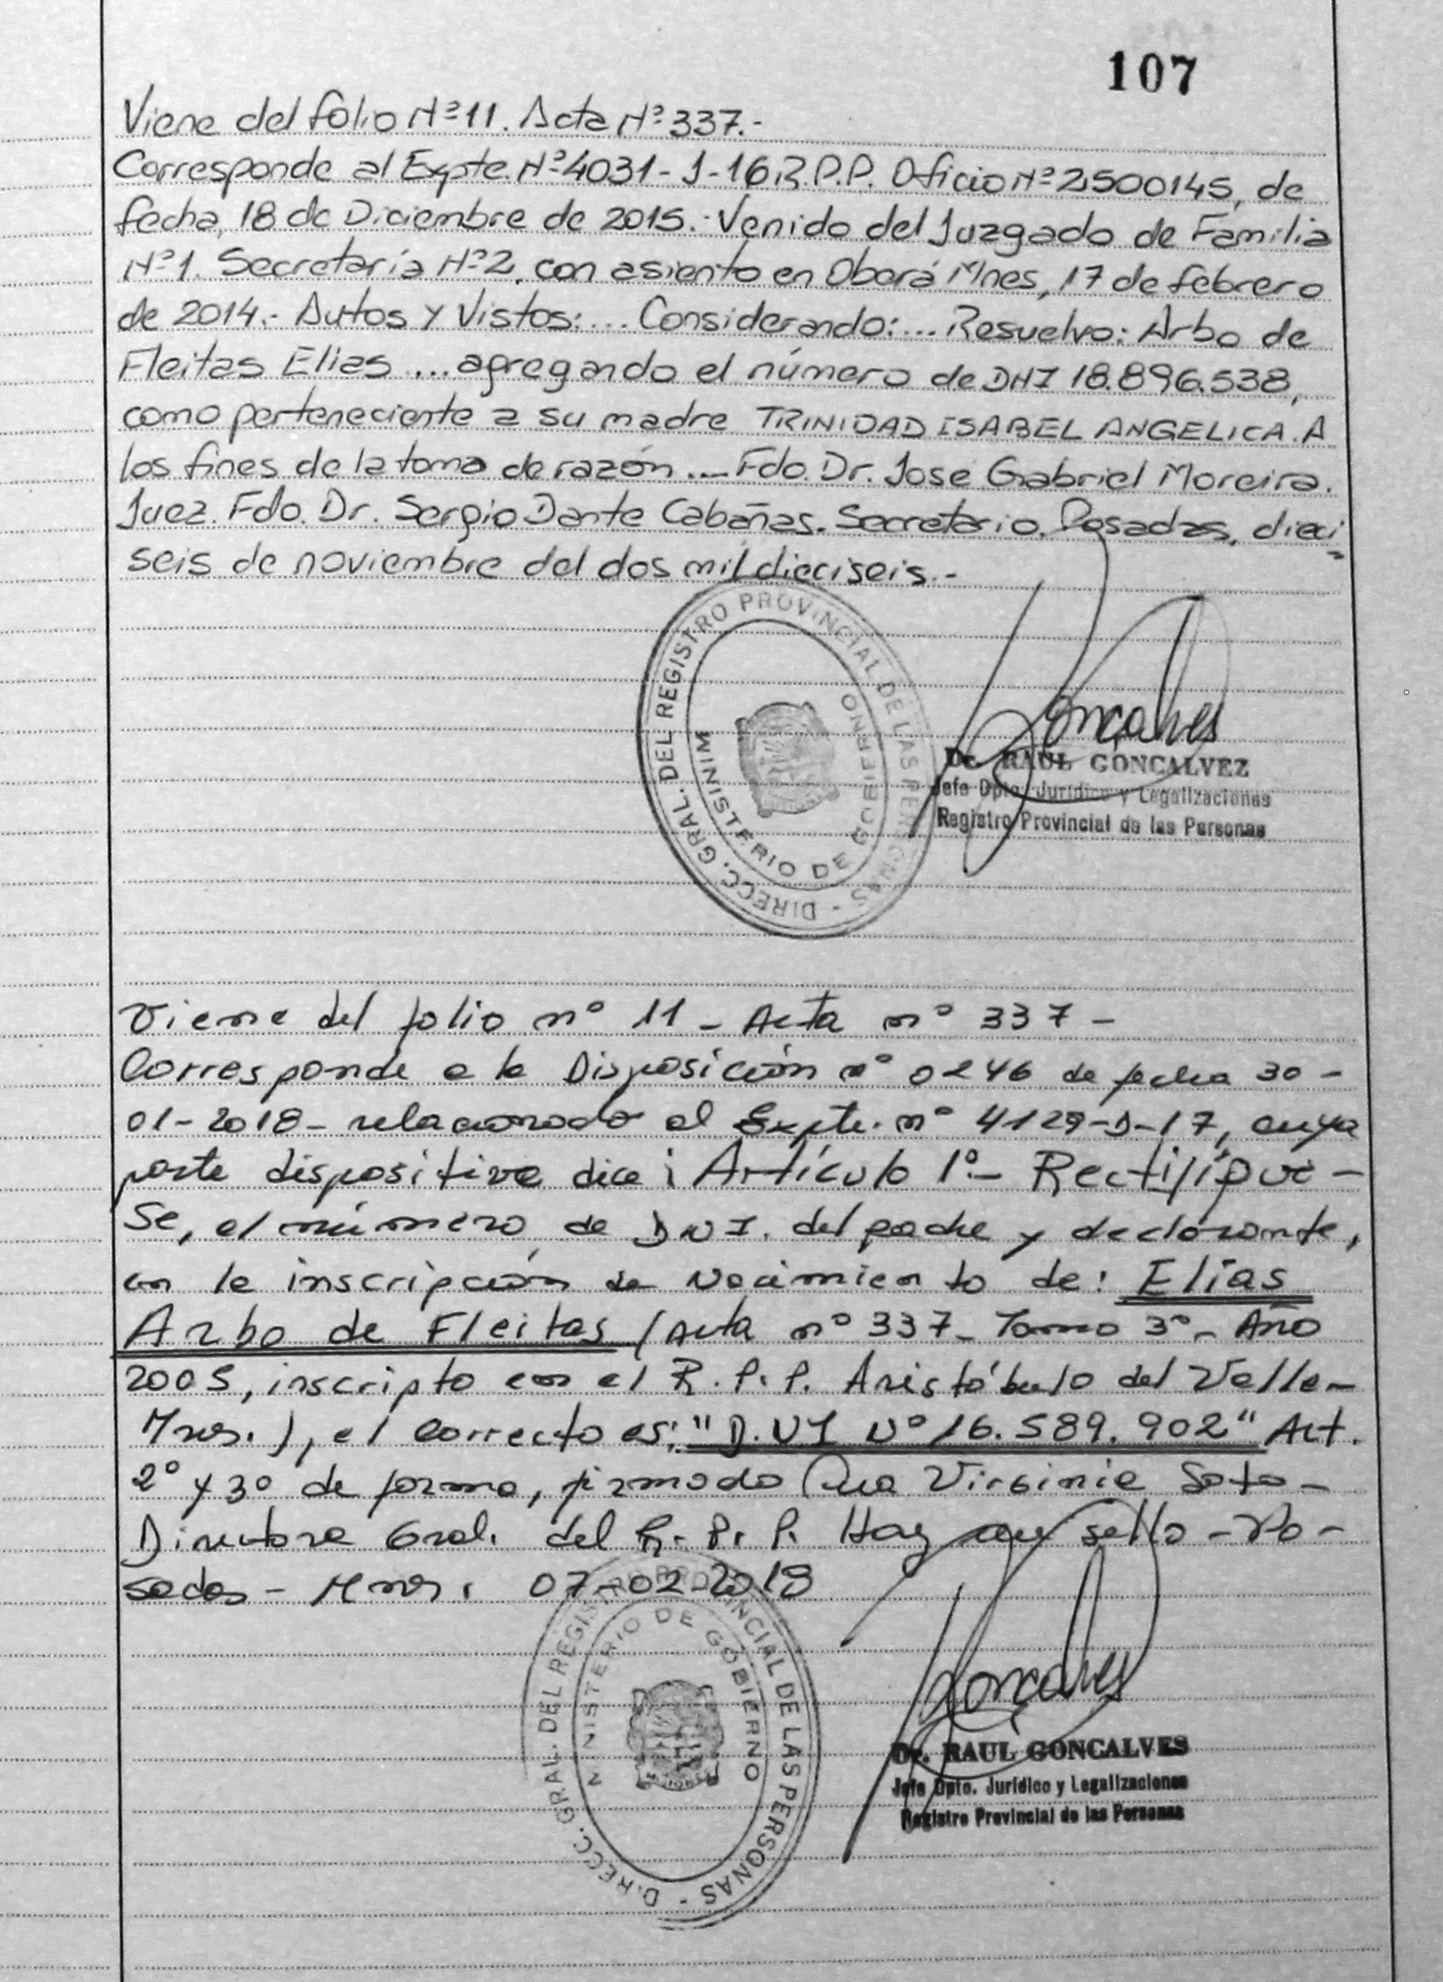 107
Viene del folio Nº 11. Acta Nº 337.-
Corresponde al Expte. Nº 4031-J-16 R.P.P. Oficio Nº 2500145, de
fecha, 18 de Diciembre de 2015.- Venido del Juzgado de Familia
Nº 1. Secretaría Nº 2, con asiento en Oberá Mnes, 17 de febrero
de 2014.- Autos y Vistos:... Considerando:... Resuelvo: Arbo de
Fleitas Elias ... agregando el número de DNI 18.896.538,
como perteneciente a su madre TRINIDAD ISABEL ANGELICA. A
los fines de la toma de razón ... Fdo. Dr. José Gabriel Moreira.
Juez. Fdo. Dr. Sergio Dante Cabañas. Secretario. Posadas, dieci=
seis de noviembre del dos mil dieciseis.-
DIRECC. GRAL. DEL REGISTRO PROVINCIAL DE LAS PERSONAS -
MINISTERIO DE GOBIERNO
Goncalves
Dr. RAUL GONCALVEZ
Jefe Dpto. Jurídico y Legalizaciones
Registro Provincial de las Personas
Viene del folio nº 11 - Acta nº 337 -
Corresponde a la Disposición nº 0246 de fecha 30 -
01-2018- relacionado al Expte. nº 4129-D-17, cuya
parte dispositiva dice: Artículo 1º- Rectifíque-
se, el número de DNI. del padre y declarante,
en la inscripción de nacimiento de: Elías
Arbo de Fleitas (Acta nº 337- Tomo 3º- Año
2005, inscripto en el R.P.P. Aristóbulo del Valle-
Mnes.), el correcto es: "D.NI Nº 16.589.902" Art.
2º y 3º de forma, firmado Ana Virginia Soto-
Directora Gral. del R.P.P. Hay un sello - Po-
sadas - Mnes. 07-02-2018
DIRECC. GRAL. DEL REGISTRO PROVINCIAL DE LAS PERSONAS -
MINISTERIO DE GOBIERNO
MISIONES
Goncalves
Dr. RAUL GONCALVES
Jefe Dpto. Jurídico y Legalizaciones
Registro Provincial de las Personas